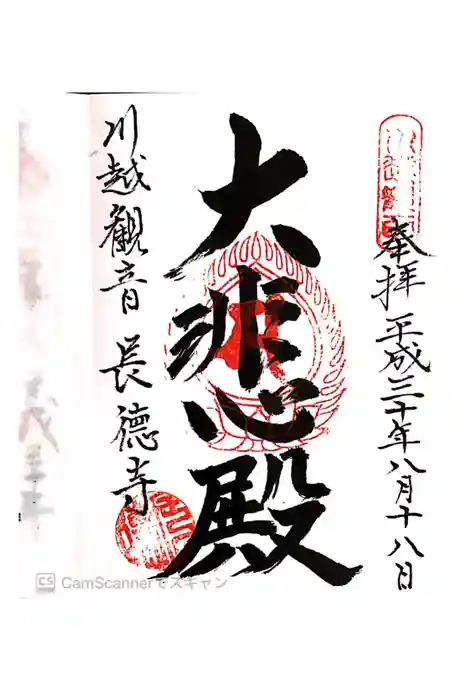 奉拝 平成三十年八月十八日
大悲殿
川越觀音 長德寺
CS CamScannerでスキャン